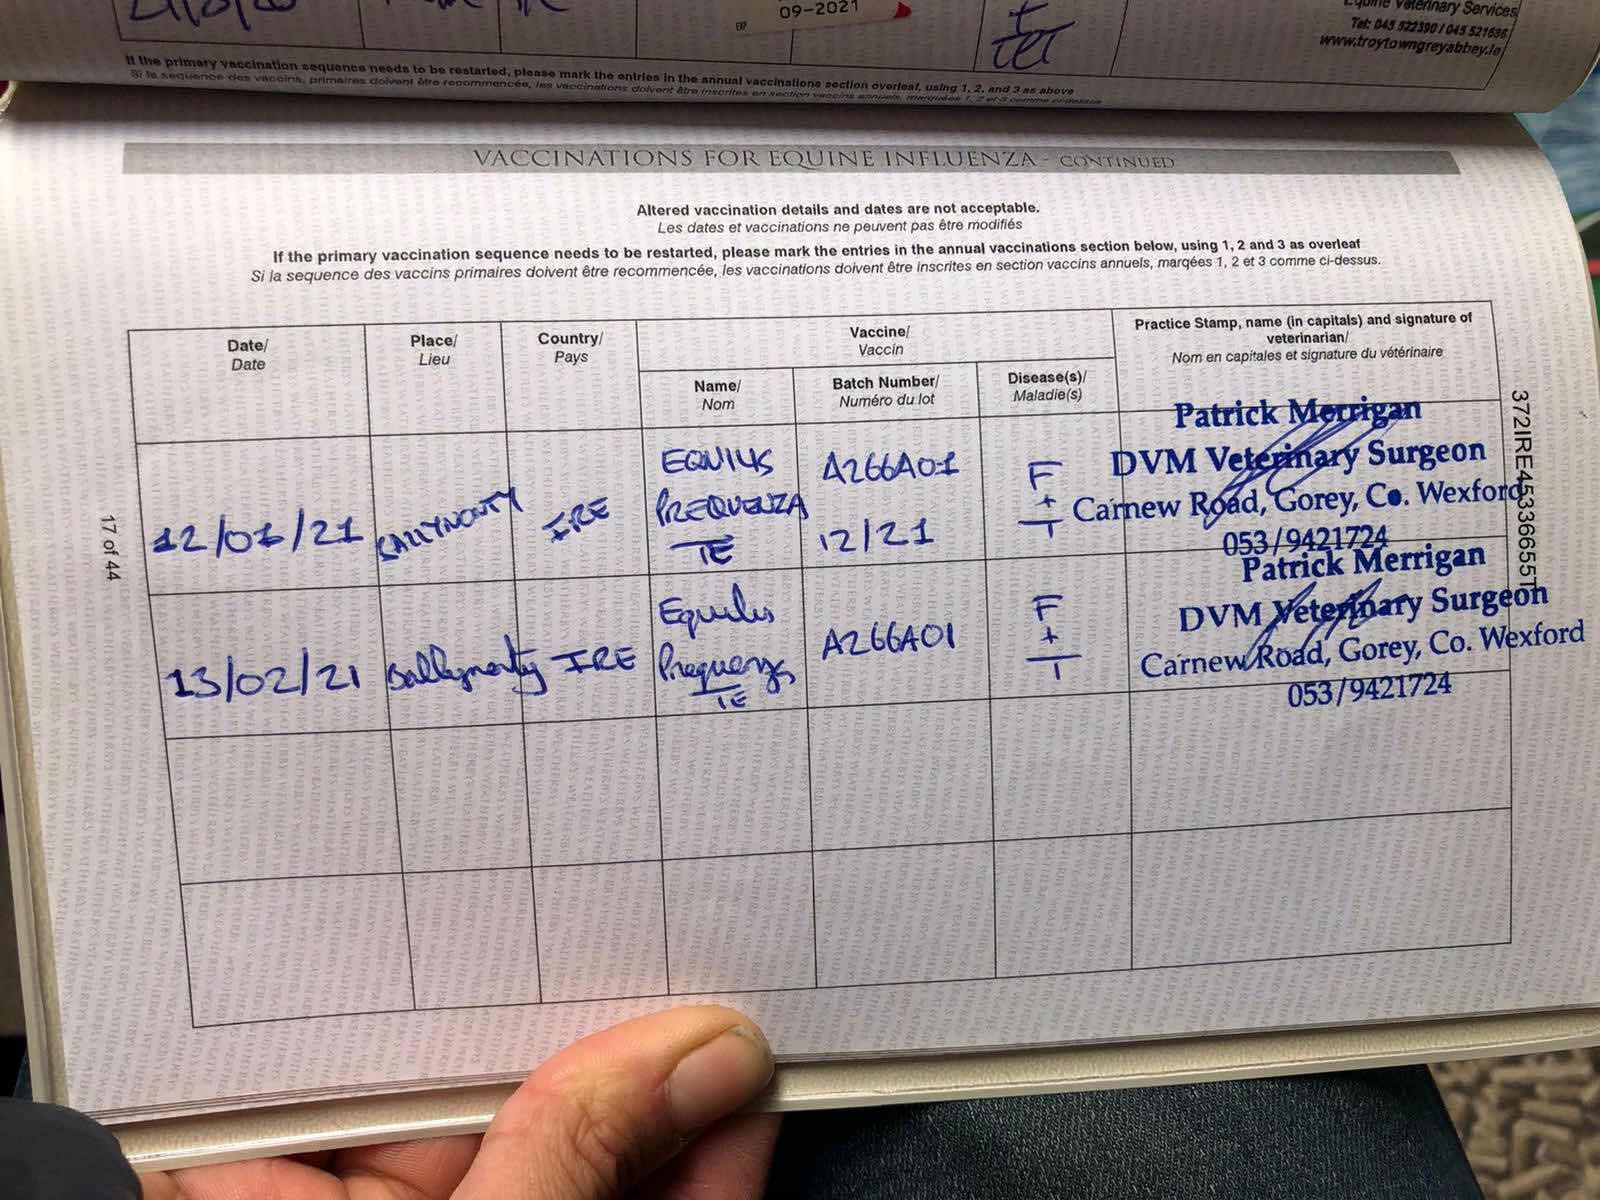 EXP
09-2021
F
+
TET
Equine Veterinary Services
Tel: 045 522390 / 045 521686
www.troytowngreyabbey.ie
If the primary vaccination sequence needs to be restarted, please mark the entries in the annual vaccinations section overleaf, using 1, 2, and 3 as above
Si la sequence des vaccins, primaires doivent être recommencée, les vaccinations doivent être inscrites en section vaccins annuels, marquées 1, 2 et 3 comme ci-dessus
VACCINATIONS FOR EQUINE INFLUENZA - CONTINUED
Altered vaccination details and dates are not acceptable.
Les dates et vaccinations ne peuvent pas être modifiés
If the primary vaccination sequence needs to be restarted, please mark the entries in the annual vaccinations section below, using 1, 2 and 3 as overleaf
Si la sequence des vaccins primaires doivent être recommencée, les vaccinations doivent être inscrites en section vaccins annuels, marqées 1, 2 et 3 comme ci-dessus.
Date/
Date
Place/
Lieu
Country/
Pays
Vaccine/
Vaccin
Name/
Nom
Batch Number/
Numéro du lot
Disease(s)/
Maladie(s)
Practice Stamp, name (in capitals) and signature of
veterinarian/
Nom en capitales et signature du vétérinaire
12/01/21
BALLYNONTY
IRE
EQNILIS
PREQUENZA
TE
A266A01
12/21
F
+
T
Patrick Merrigan
DVM Veterinary Surgeon
Carnew Road, Gorey, Co. Wexford
053/9421724
13/02/21
Ballynonty
IRE
Equilis
Prequenza
TE
A266A01
F
+
T
Patrick Merrigan
DVM Veterinary Surgeon
Carnew Road, Gorey, Co. Wexford
053/9421724
17 of 44
372IRE45336655T